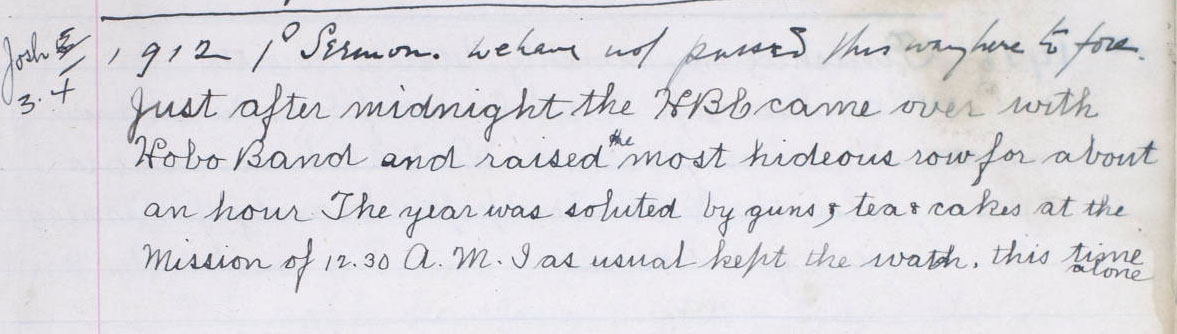 Josh
3.4
1912 1° Sermon. We have not passed this way here to fore.
Just after midnight the HBC came over with
Hobo Band and raised the most hideous row for about
an hour The year was soluted by guns, tea & cakes at the
Mission of 12.30 A.M. I as usual kept the wath, this time
alone